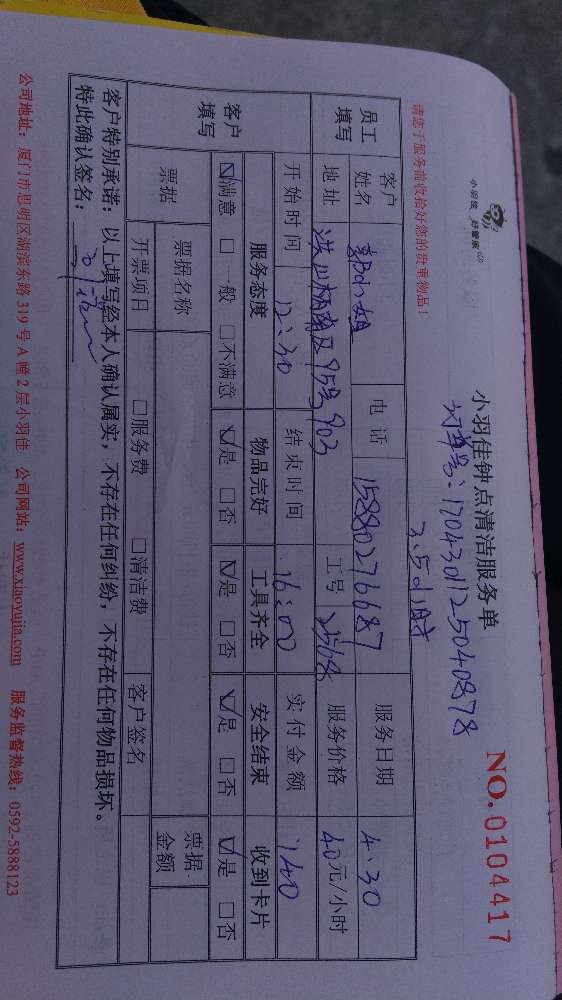 小羽佳 好管家
小羽佳钟点清洁服务单
NO.0104417
订单号:1704301125040878
请您于服务前收拾好您的贵重物品!
3.5小时
员工填写
客户姓名 郭小姐 电话 15880276687 服务日期 4.30
地址 95号903 工号 服务价格 40元/小时
开始时间 12:30 结束时间 16:00 实付金额 140
客户填写
服务态度 物品完好 工具齐全 安全结束 收到卡片
☑满意 □一般 □不满意 ☑是 □否 ☑是 □否 ☑是 □否 ☑是 □否
票据 票据名称 票据金额
开票项目 □服务费 □清洁费 客户签名
客户特别承诺:以上填写经本人确认属实,不存在任何纠纷,不存在任何物品损坏。
特此确认签名:
公司地址:厦门市思明区湖滨东路 319 号 A 幢 2 层小羽佳 公司网站:www.xiaoyujia.com 服务监督热线:0592-5888123